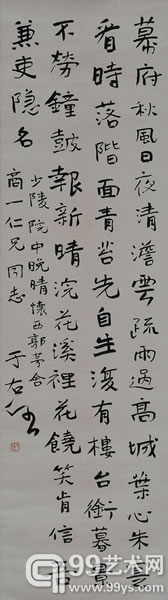 幕府秋風日夜清澹雲疏雨過高城葉心朱實
看時落階面青苔先自生復有樓台銜暮景
不勞鐘鼓報新晴浣花溪裡花饒笑肯信吾
兼吏隐名
少陵院中晚晴懷西郭茅舍
高一仁兄同志
于右任
99艺术网
www.99ys.com